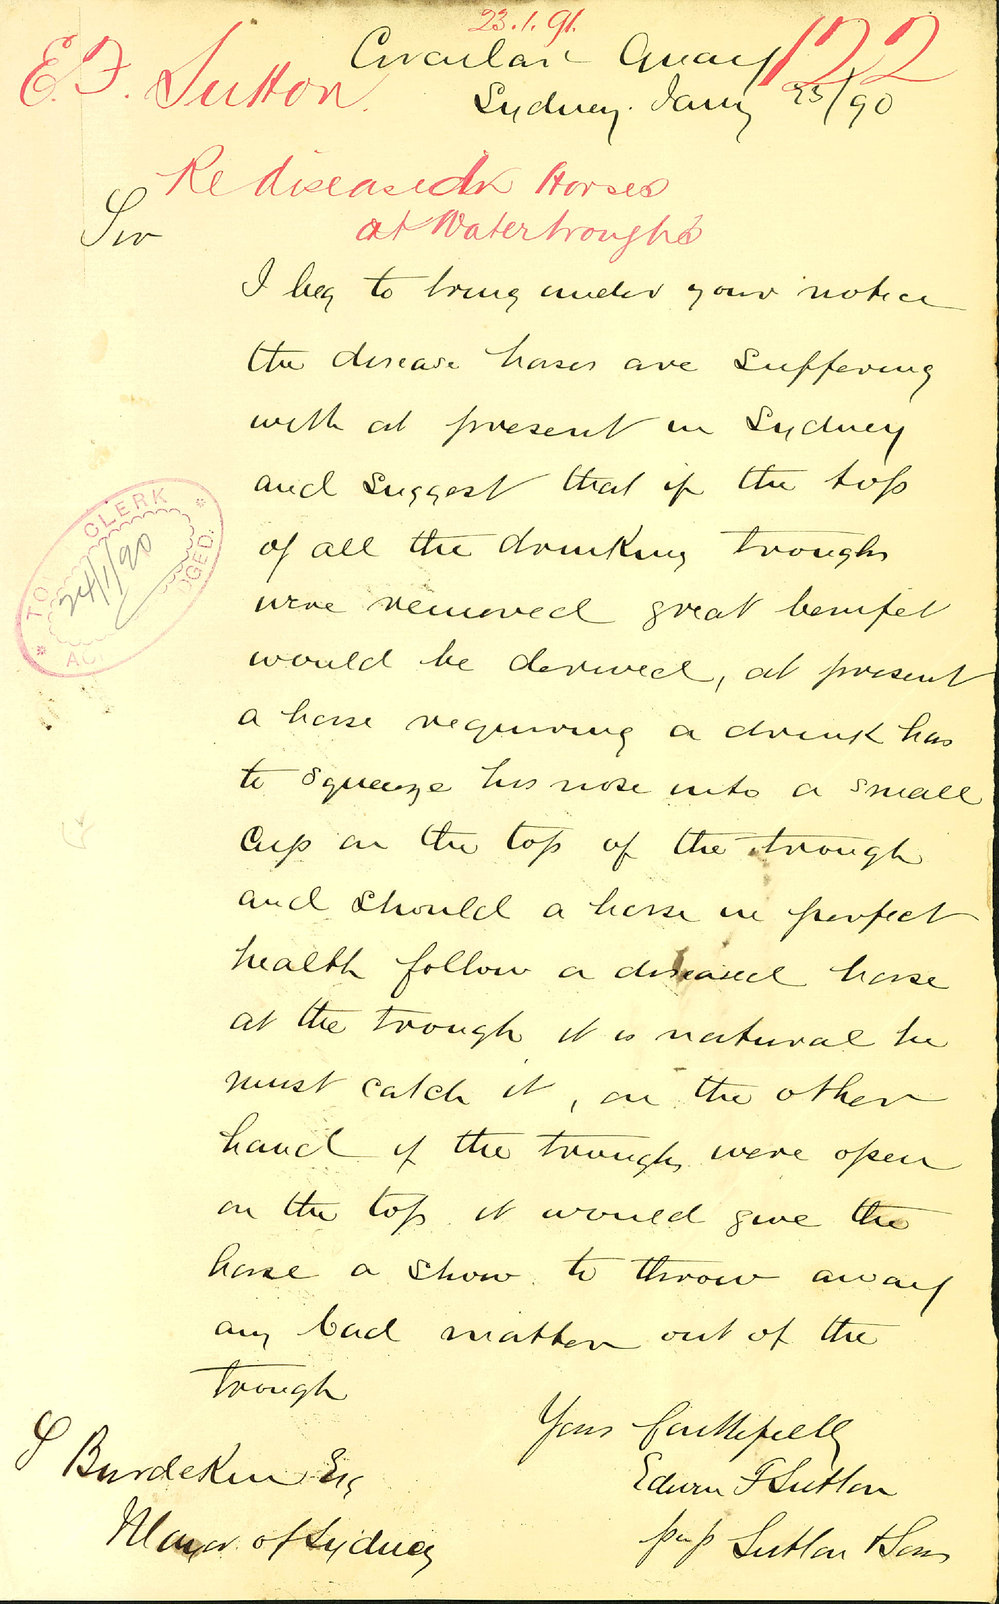 23.1.91.
E. F. Sutton.
122
Circular Quay
Sydney. Jany 23/90
Re diseased Horses
at Watertroughs
Sir
I beg to bring under your notice
the disease horses are suffering
with at present in Sydney
and suggest that if the tops
of all the drinking troughs
were removed great benifet
would be derived, at present
a horse requiring a drink has
to squeeze his nose into a small
cup on the top of the trough
and should a horse in perfect
health follow a diseased horse
at the trough it is natural he
must catch it, on the other
hand if the troughs were open
on the top it would give the
horse a show to throw away
any bad matter out of the
trough
TOWN CLERK
24/1/90
Yours faithfully
Edwin F Sutton
pup Sutton & Sons
S Burdekin Esq
Mayor of Sydney